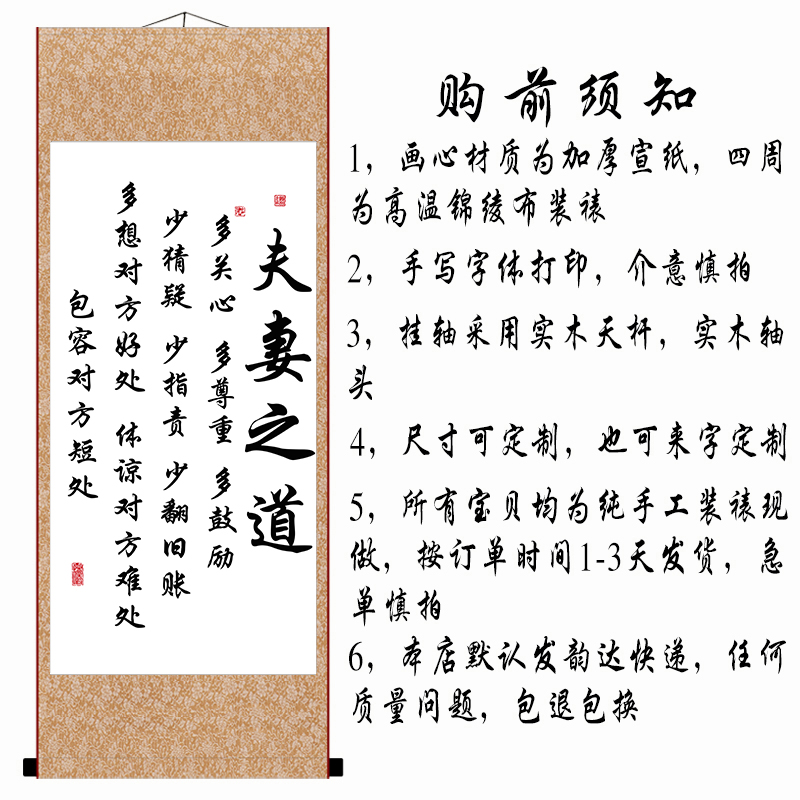 夫妻之道
多关心 多尊重 多鼓励
少猜疑 少指责 少翻旧账
多想对方好处 体谅对方难处
包容对方短处
购前须知
1，画心材质为加厚宣纸，四周
为高温锦绫布装裱
2，手写字体打印，介意慎拍
3，挂轴采用实木天杆，实木轴
头
4，尺寸可定制，也可来字定制
5，所有宝贝均为纯手工装裱现
做，按订单时间1-3天发货，急
单慎拍
6，本店默认发韵达快递，任何
质量问题，包退包换